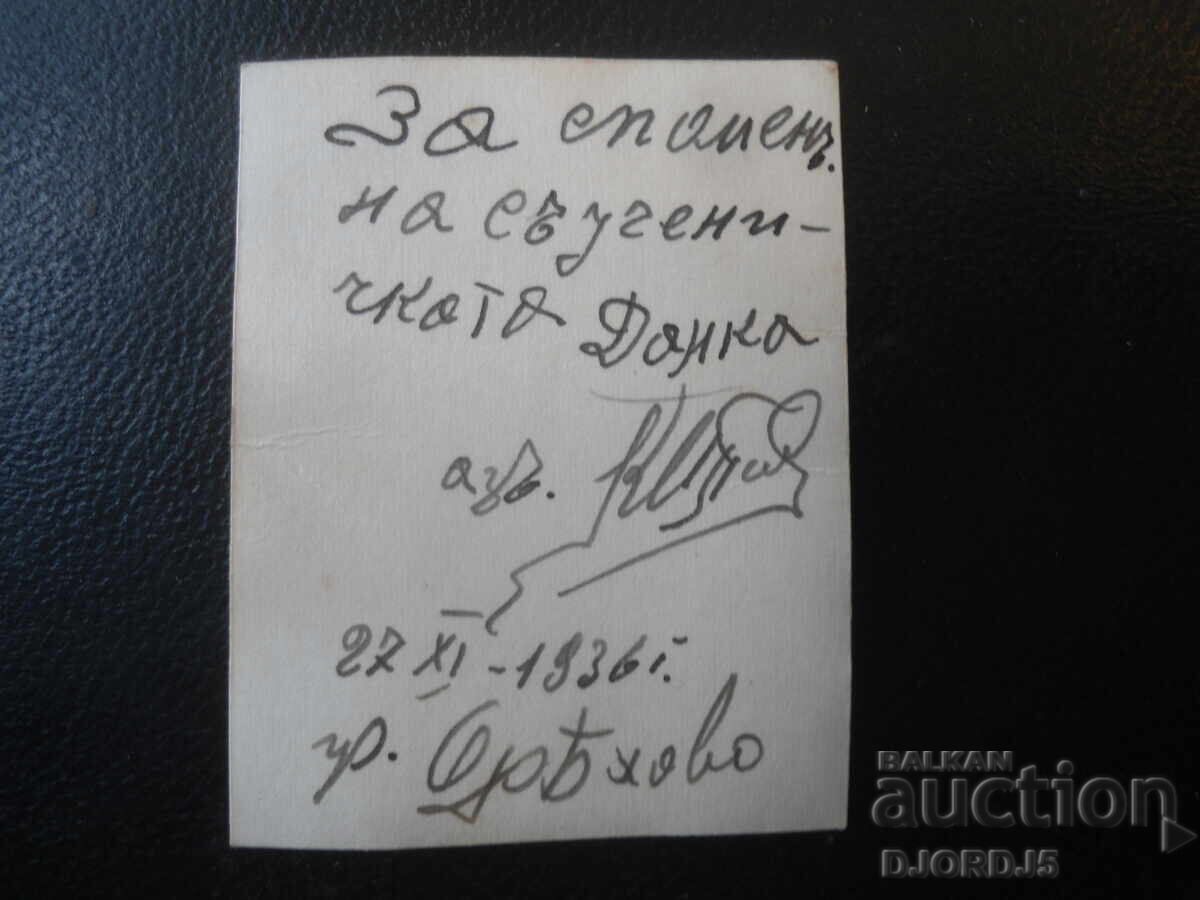 За споменъ.
на съучени-
чката Данка
азъ.
27 XI - 1936 г.
гр. Орѣхово
BALKAN
auction
DJORDJ5